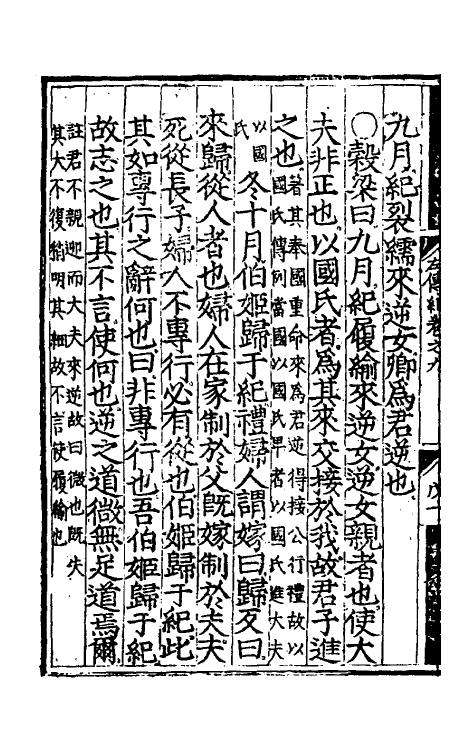 九月紀裂繻來逆女卿為君逆也
○穀梁曰九月紀履緰來逆女逆女親者也使大
夫非正也以國氏者為其來交接於我故君子進
之也著其奉國重命來為君逆得接公行禮故以
國氏傳例當國以國氏卑者以國氏進大夫
以國
氏
冬十月伯姬歸于紀禮婦人謂嫁曰歸反曰
來歸從人者也婦人在家制於父既嫁制於夫夫
死從長子婦人不專行必有從也伯姬歸于紀此
其如專行之辭何也曰非專行也吾伯姬歸于紀
故志之也其不言使何也逆之道微無足道焉爾
註君不親迎而大夫來逆故曰微也既失
其大不復稍明其細故不言使履緰也